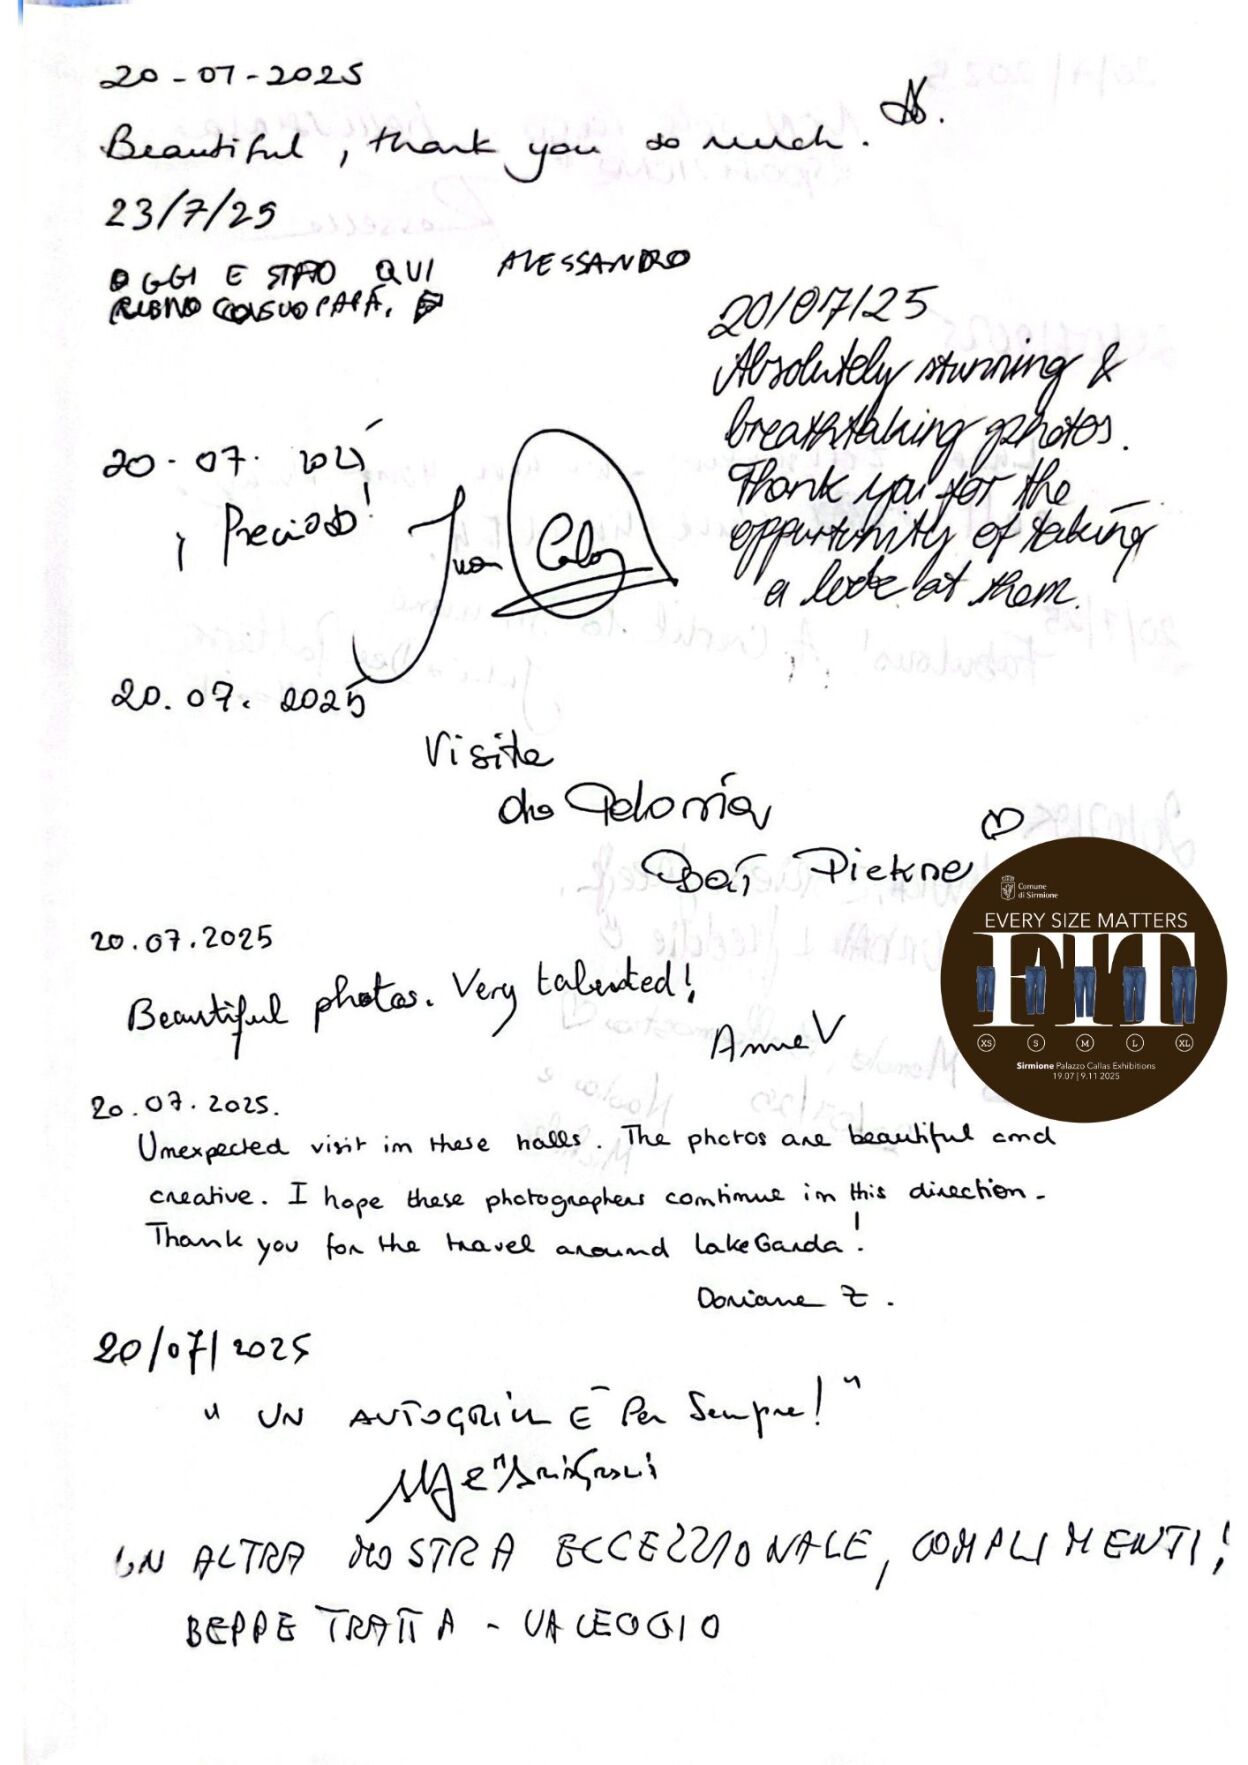 20-07-2025
Beautiful, thank you so much.
23/7/25
OGGI E STATO QUI ALESSANDRO
CON SUO PAPÁ.
20/07/25
Absolutely stunning &
breathtaking photos.
Thank you for the
opportunity of taking
a look at them.
20.07.2025
¡Precioso!
Juan Carlos
20.07.2025
Visite
20.07.2025
Beautiful photos. Very talented!
Anne V
Comune
di Sirmione
EVERY SIZE MATTERS
FIT
XS S M L XL
Sirmione Palazzo Callas Exhibitions
19.07 | 9.11 2025
20.07.2025.
Unexpected visit in these halls. The photos are beautiful and
creative. I hope these photographers continue in this direction.
Thank you for the travel around Lake Garda!
Doriane Z.
20/07/2025
"UN AUTOGRILL È Per Sempre!"
UN ALTRA MOSTRA ECCEZZIONALE, COMPLIMENTI!
BEPPE TRATTA - VALEGGIO